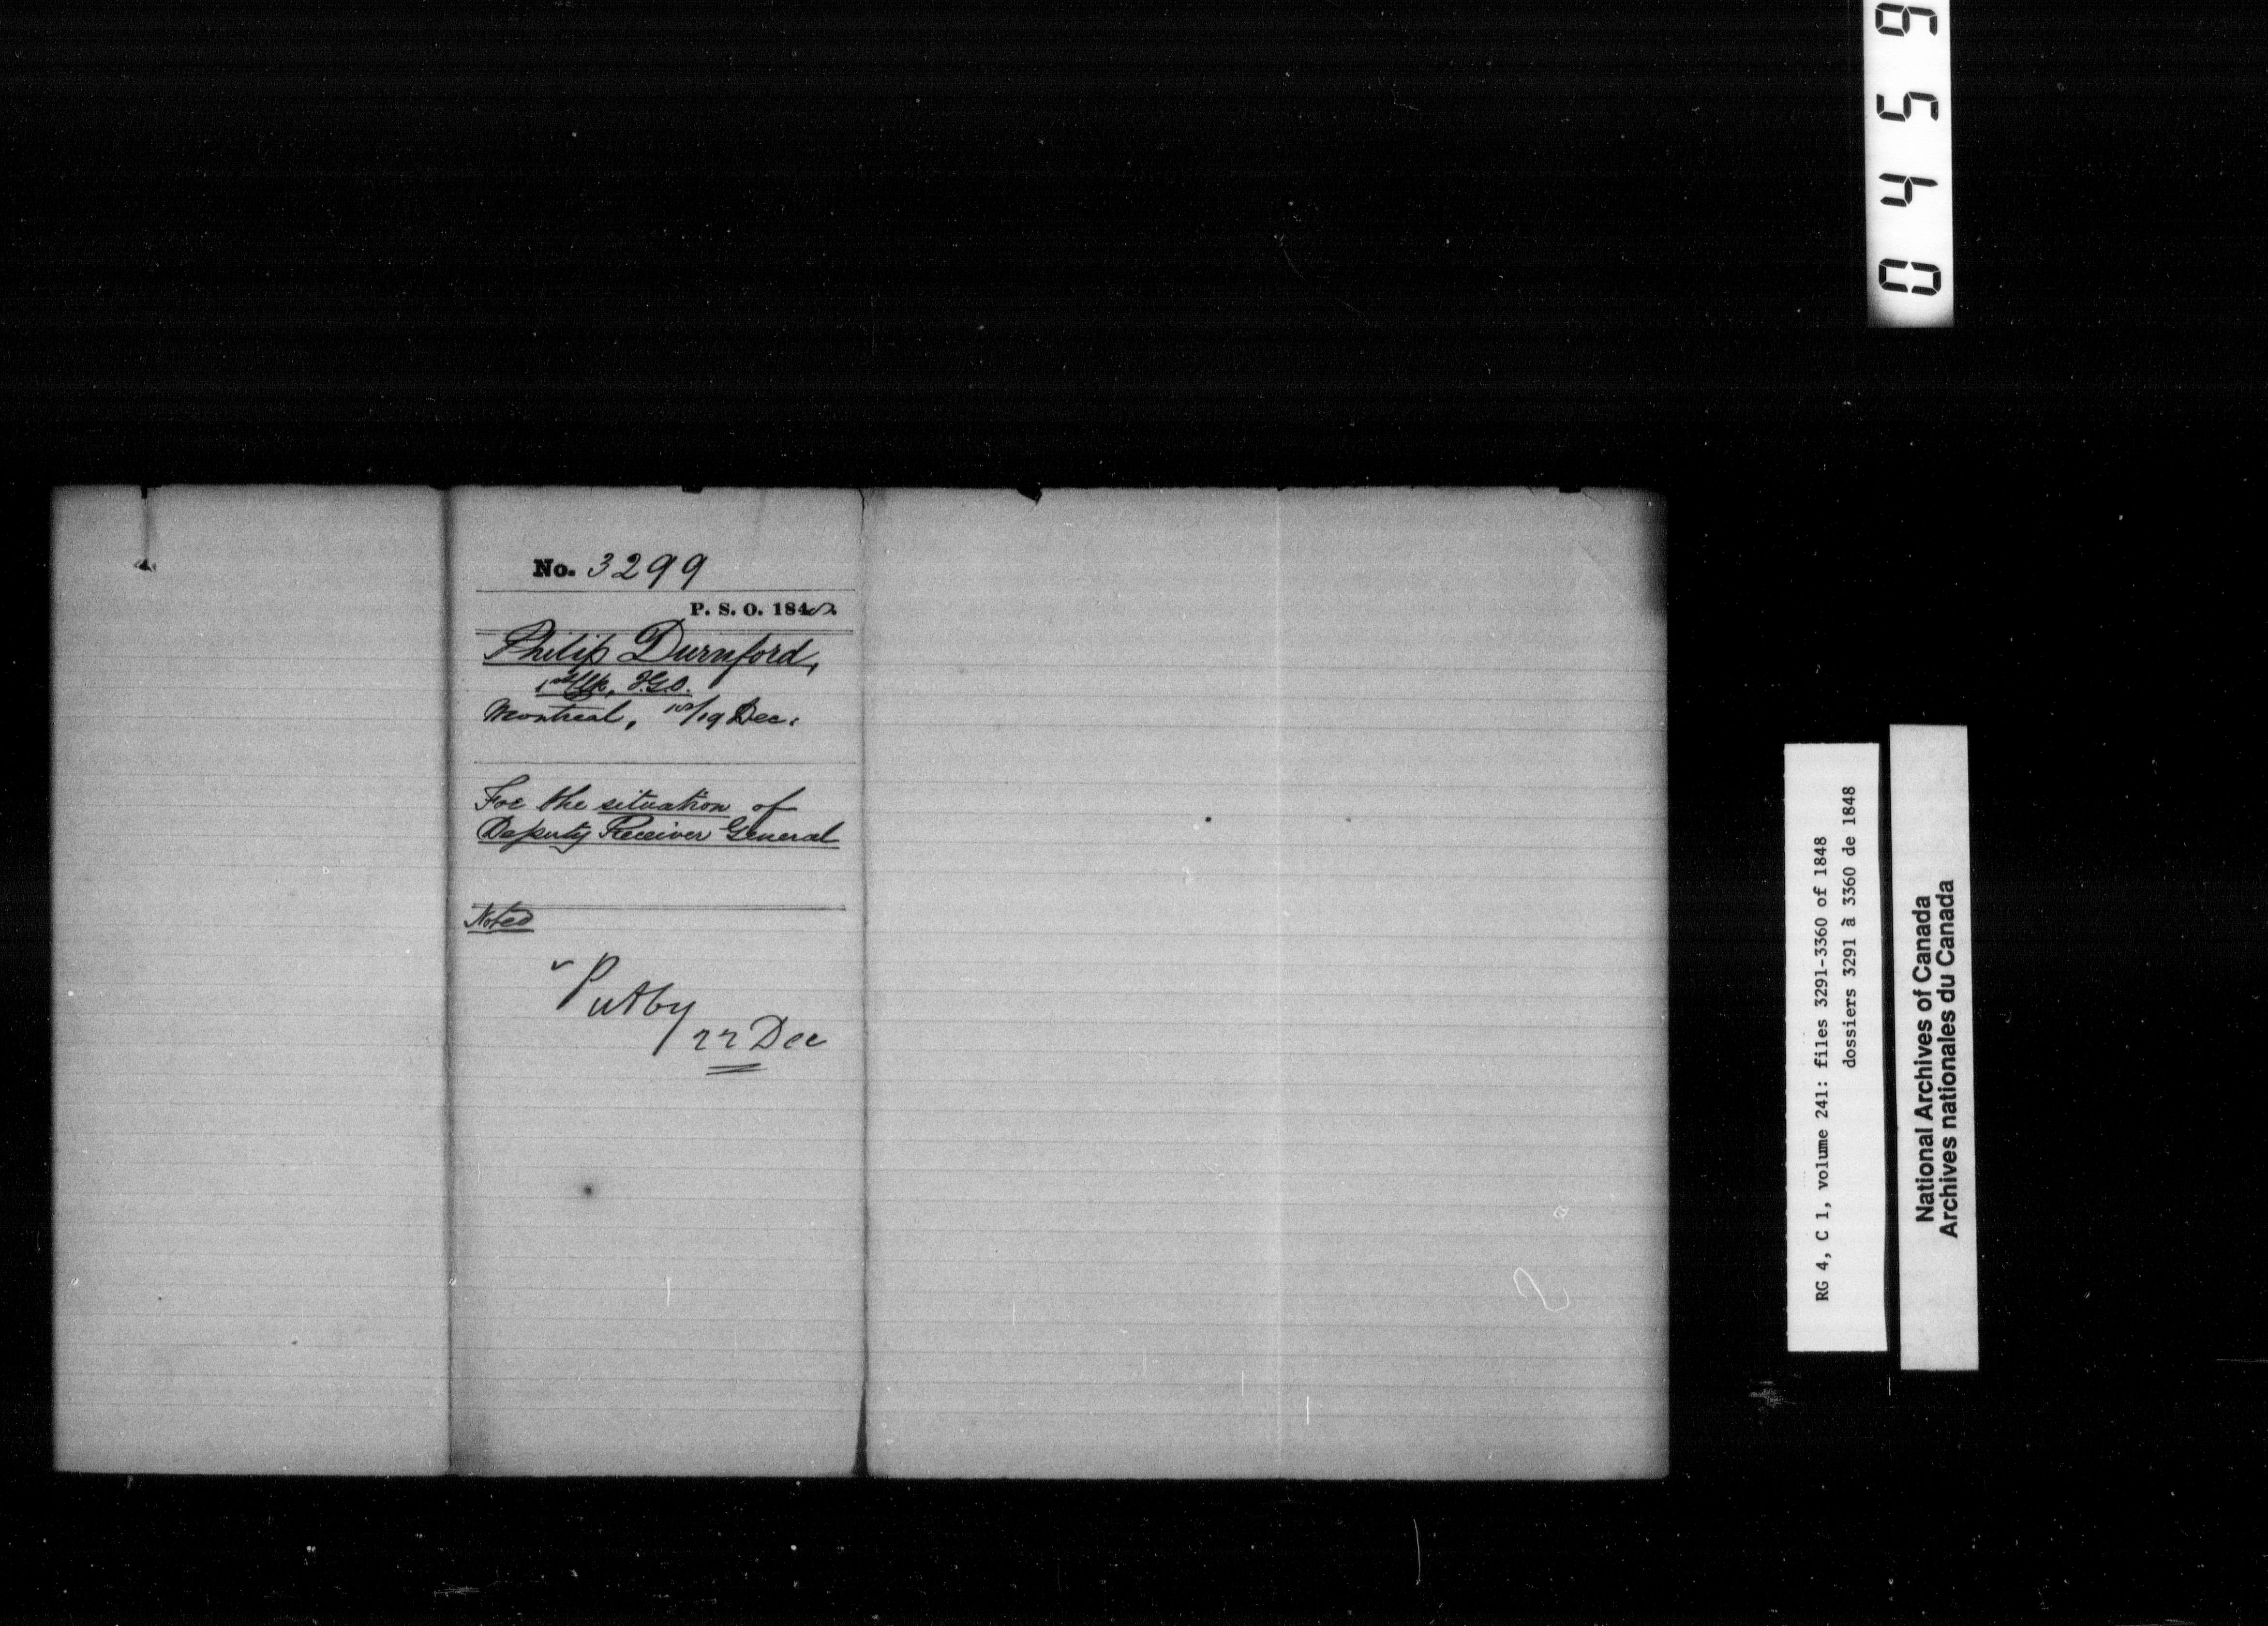 No. 3299
P. S. O. 1848.
Philip Durnford,
1st Clk, I.G.O.
Montreal, /19 Dec:
For the situation of
Deputy Receiver General
Noted
Put by
22 Dec
0459
RG 4, C 1, volume 241: files 3291-3360 of 1848
dossiers 3291 à 3360 de 1848
National Archives of Canada
Archives nationales du Canada